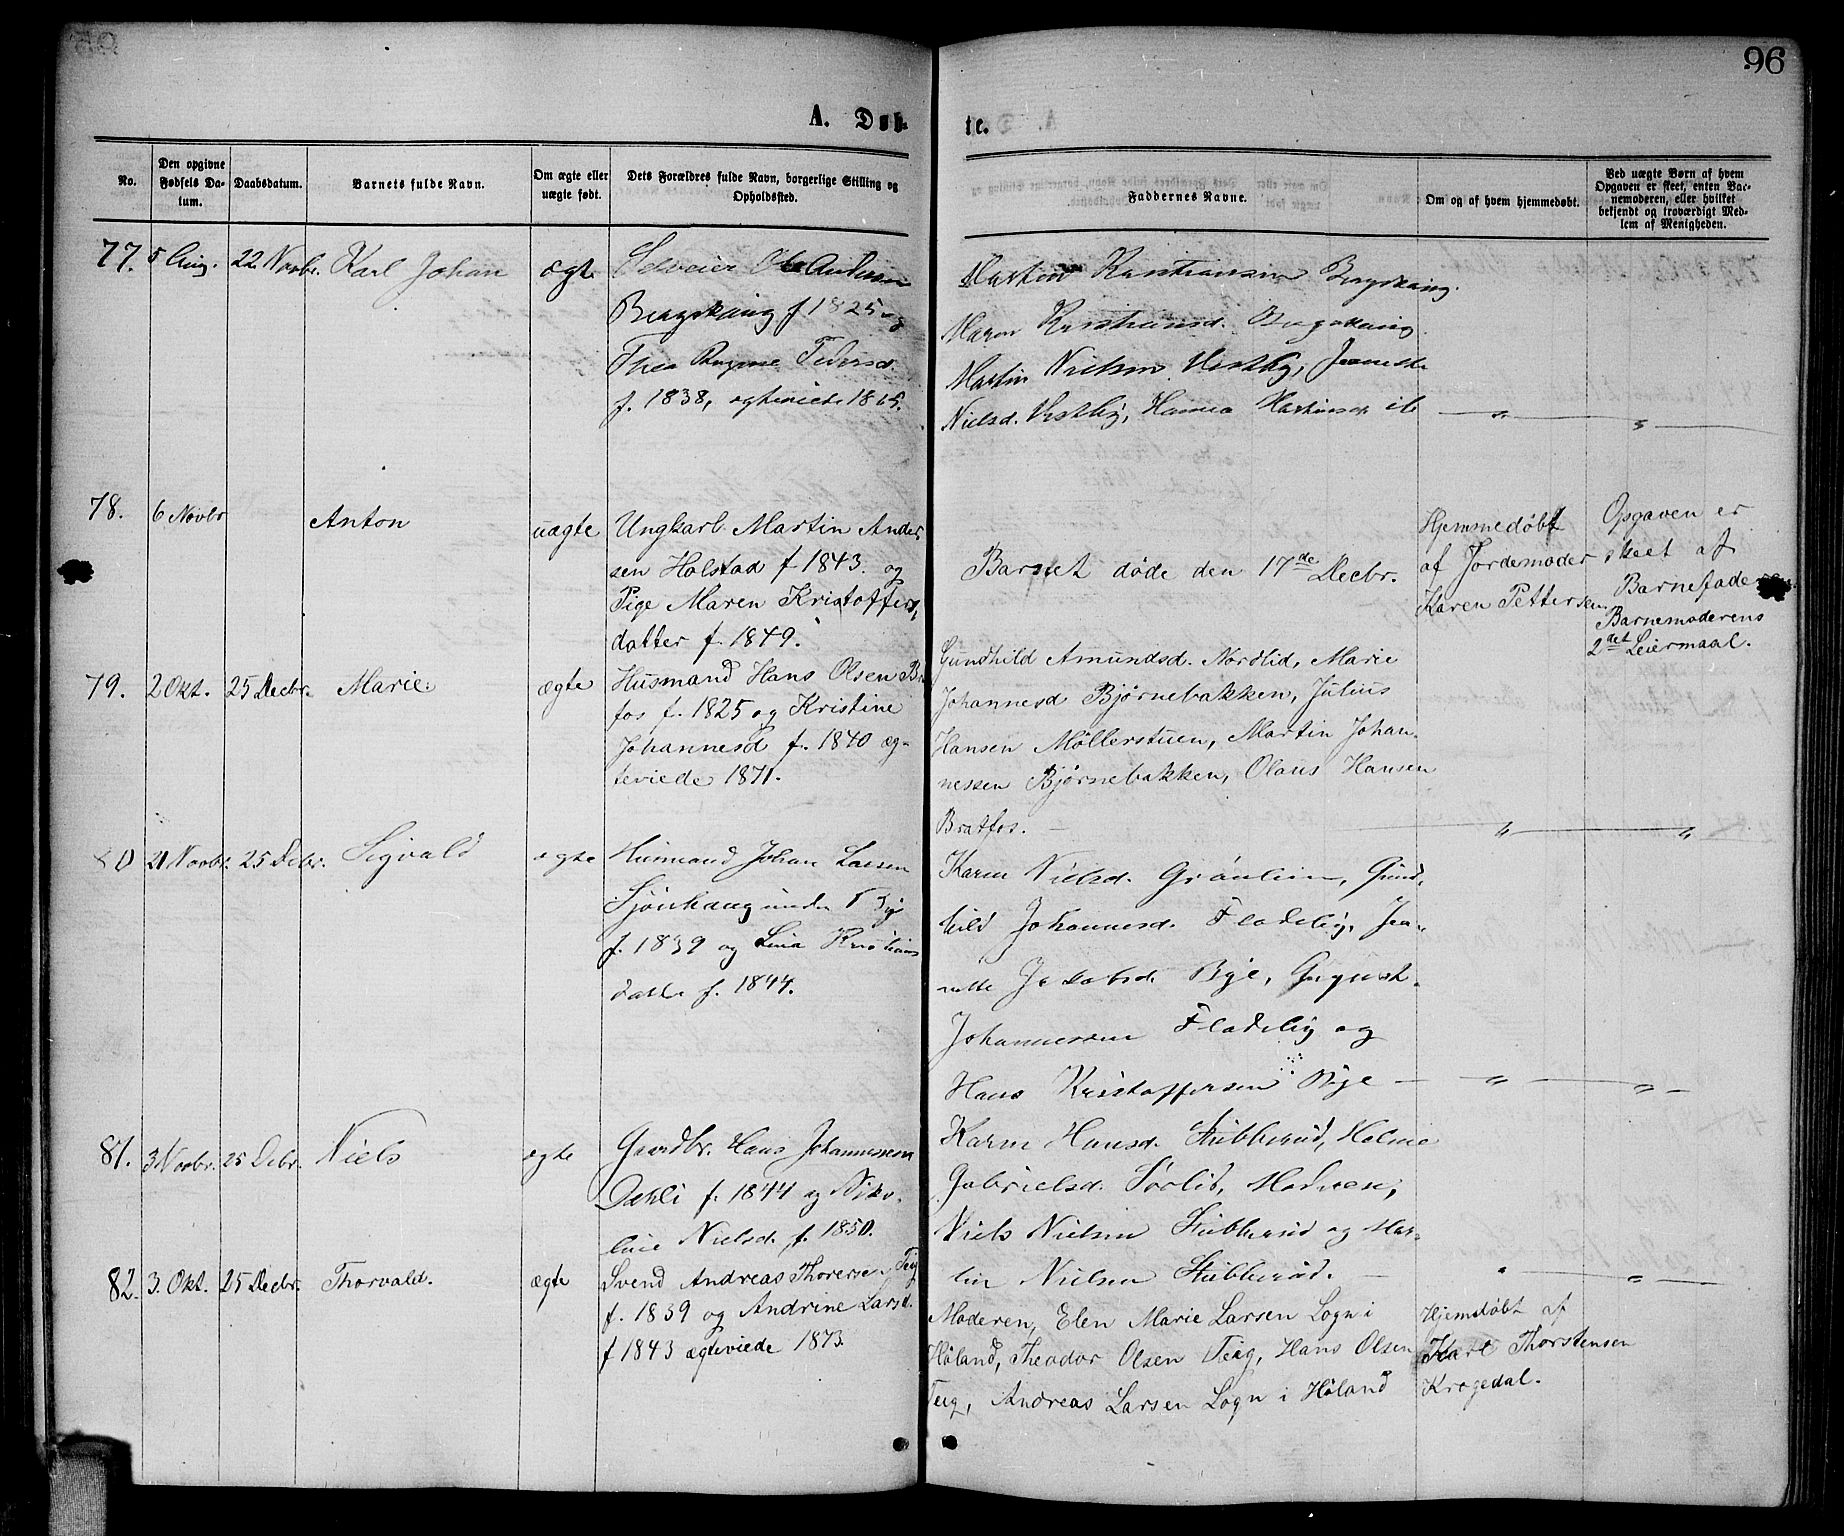 96
A. Døb-
te.
No.
Den opgivne Fødsels Da-tum.
Daabsdatum.
Barnets fulde Navn.
Om ægte eller uægte født.
Dets Forældres fulde Navn, borgerlige Stilling og Opholdssted.
Faddernes Navne.
Om og af hvem hjemmedøbt.
Ved uægte Børn af hvem Opgaven er skeet, enten Bar-nemoderen, eller hvilket bekjendt og troværdigt Med-lem af Menigheden.
77. 5 Aug. 22 Novbr. Karl Johan ægte Selveier Ole Andersen
Bergskaug f 1825 og
Thea Pedersd.
f. 1838, ægteviede 1865.
Martin Kristiansen Bergskaug.
Maren Kristiansd. Bergskaug
Martin Nielsen Vestby, Jeanette
Nielsd. Vestby, Hanna Martinsd. ib
78. 6 Novbr Anton uægte Ungkarl Martin Ander
sen Holstad f 1843. og
Pige Maren Kristoffers,
datter f. 1849.
Barnet døde den 17de Decbr.
Hjemmedøbt
af Jordemoder
Karen Pettersen
Opgaven er
skeet af
Barnefaderen.
Barnemoderens
2det Leiermaal.
79. 2 Okt. 25 Decbr. Marie. ægte Husmand Hans Olsen Br
fos f. 1825 og Kristine
Johannesd f. 1840 æg-
teviede 1871.
Gundhild Amundsd. Nordlid, Marie
Johannesd Bjørnebakken, Julius
Hansen Møllerstuen, Martin Johan-
nessen Bjørnebakken, Olaus Hansen
Bratfos.
80 21 Novbr. 25 Debr. Sigvald ægte Husmand Johan Larsen
Sjönhaug under
f. 1839 og Lina Kristians
datter f. 1844.
Karen Nielsd. Grönlien, Gund-
hild Johannesd. Fladeby, Jea-
nette Jakobsd. Bye, August
Johannessen Fladeby og
Hans Kristoffersen Bye
81. 3 Novbr. 25 Debr. Niels ægte Gaardbr. Hans Johannessen
Dehli f. 1844 og Niko-
line Nielsd. f. 1850.
Karen Hansd. Stubberud,
Gabrielsd. Sörlid,
Niels Nielsen Stubberud og Mar-
tin Nielsen Stubberud.
82. 3. Okt. 25 Decbr. Thorvald. ægte Svend Andreas Thoresen Teig
f. 1839 og Andrine Larsd.
f 1843 ægteviede 1873.
Moderen, Elen Marie Larsen Logn i
Høland, Theodor Olsen Teig, Hans Olsen
Teig, Andreas Larsen Logn i Høland
Hjemdøbt af
Karl Thorstensen
Krogedal.